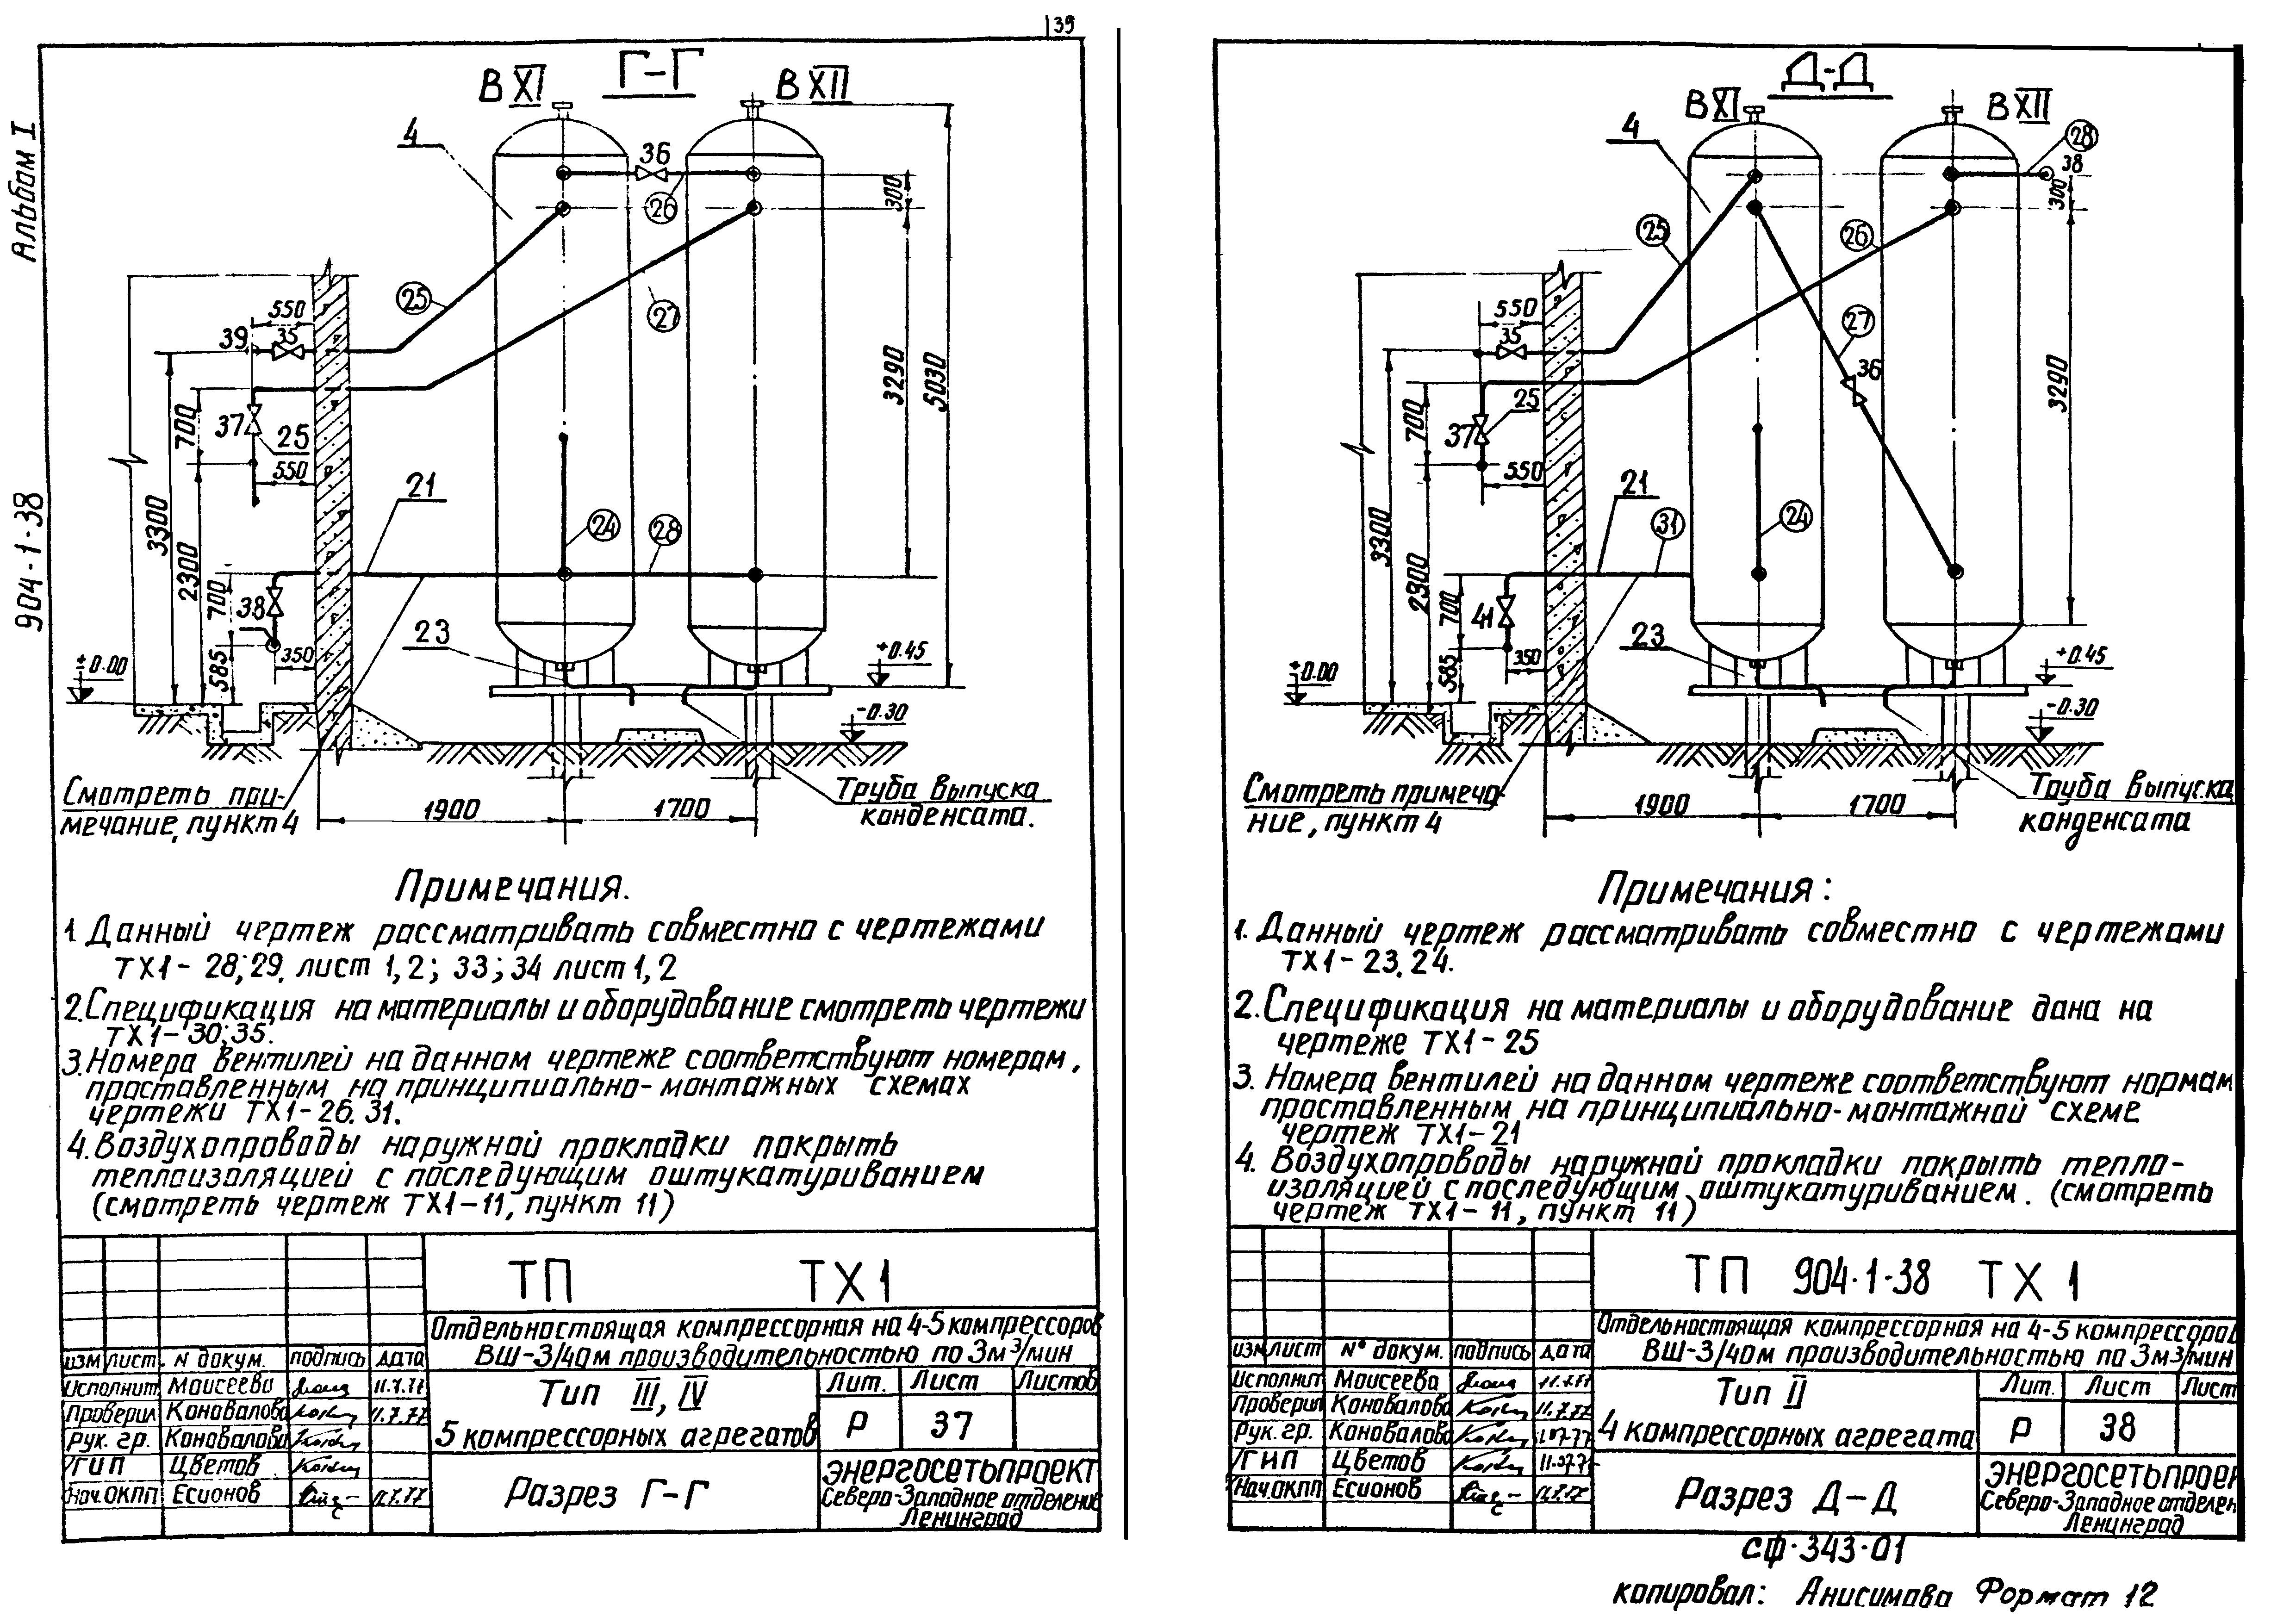 39
Альбом I
904-1-38
Г-Г
В XI
В XII
4
36
26
300
25
27
550
39
35
3290
5030
700
37
25
550
3300
2300
21
24
28
700
38
585
350
23
±0.00
+0.45
-0.30
Смотреть при-
мечание, пункт 4
1900
1700
Труба выпуска
конденсата.
Примечания.
1. Данный чертеж рассматривать совместно с чертежами
ТХ1-28;29, лист 1,2; 33;34 лист 1,2
2. Спецификация на материалы и оборудование смотреть чертежи
ТХ1-30;35.
3. Номера вентилей на данном чертеже соответствуют номерам,
проставленным на принципиально-монтажных схемах
чертежи ТХ1-26.31.
4. Воздухопроводы наружной прокладки покрыть
теплоизоляцией с последующим оштукатуриванием
(смотреть чертеж ТХ1-11, пункт 11)
ТП ТХ1
Отдельностоящая компрессорная на 4-5 компрессоров
ВШ-3/40м производительностью по 3м³/мин
изм лист. N докум. подпись дата
Исполнит. Моисеева 11.7.77
Проверил Коновалова 11.7.77
Рук. гр. Коновалова
ГИП Цветов
Нач. ОКПП Есионов 11.7.77
Тип III, IV
5 компрессорных агрегатов
Лит. Лист Листов
Р 37
Разрез Г-Г
ЭНЕРГОСЕТЬПРОЕКТ
Северо-Западное отделение
Ленинград
Д-Д
В XI
В XII
4
28
38
300
25
26
550
35
27
36
3290
700
37
25
550
3300
2300
21
31
24
700
41
585
350
23
±0.00
+0.45
-0.30
Смотреть примеча-
ние, пункт 4
1900
1700
Труба выпуска
конденсата
Примечания:
1. Данный чертеж рассматривать совместно с чертежами
ТХ1-23.24.
2. Спецификация на материалы и оборудование дана на
чертеже ТХ1-25
3. Номера вентилей на данном чертеже соответствуют нормам
проставленным на принципиально-монтажной схеме
чертеж ТХ1-21
4. Воздухопроводы наружной прокладки покрыть тепло-
изоляцией с последующим оштукатуриванием. (смотреть
чертеж ТХ1-11, пункт 11)
ТП 904-1-38 ТХ 1
Отдельностоящая компрессорная на 4-5 компрессоров
ВШ-3/40м производительностью по 3м³/мин
изм лист N° докум. подпись дата
Исполнит Моисеева 11.7.77
Проверил Коновалова 11.7.77
Рук. гр. Коновалова
ГИП Цветов
Нач. ОКПП Есионов
Тип II
4 компрессорных агрегата
Лит. Лист Лист
Р 38
Разрез Д-Д
ЭНЕРГОСЕТЬПРОЕК
Северо-Западное отделен
Ленинград
сф-343-01
копировал: Анисимова Формат 12